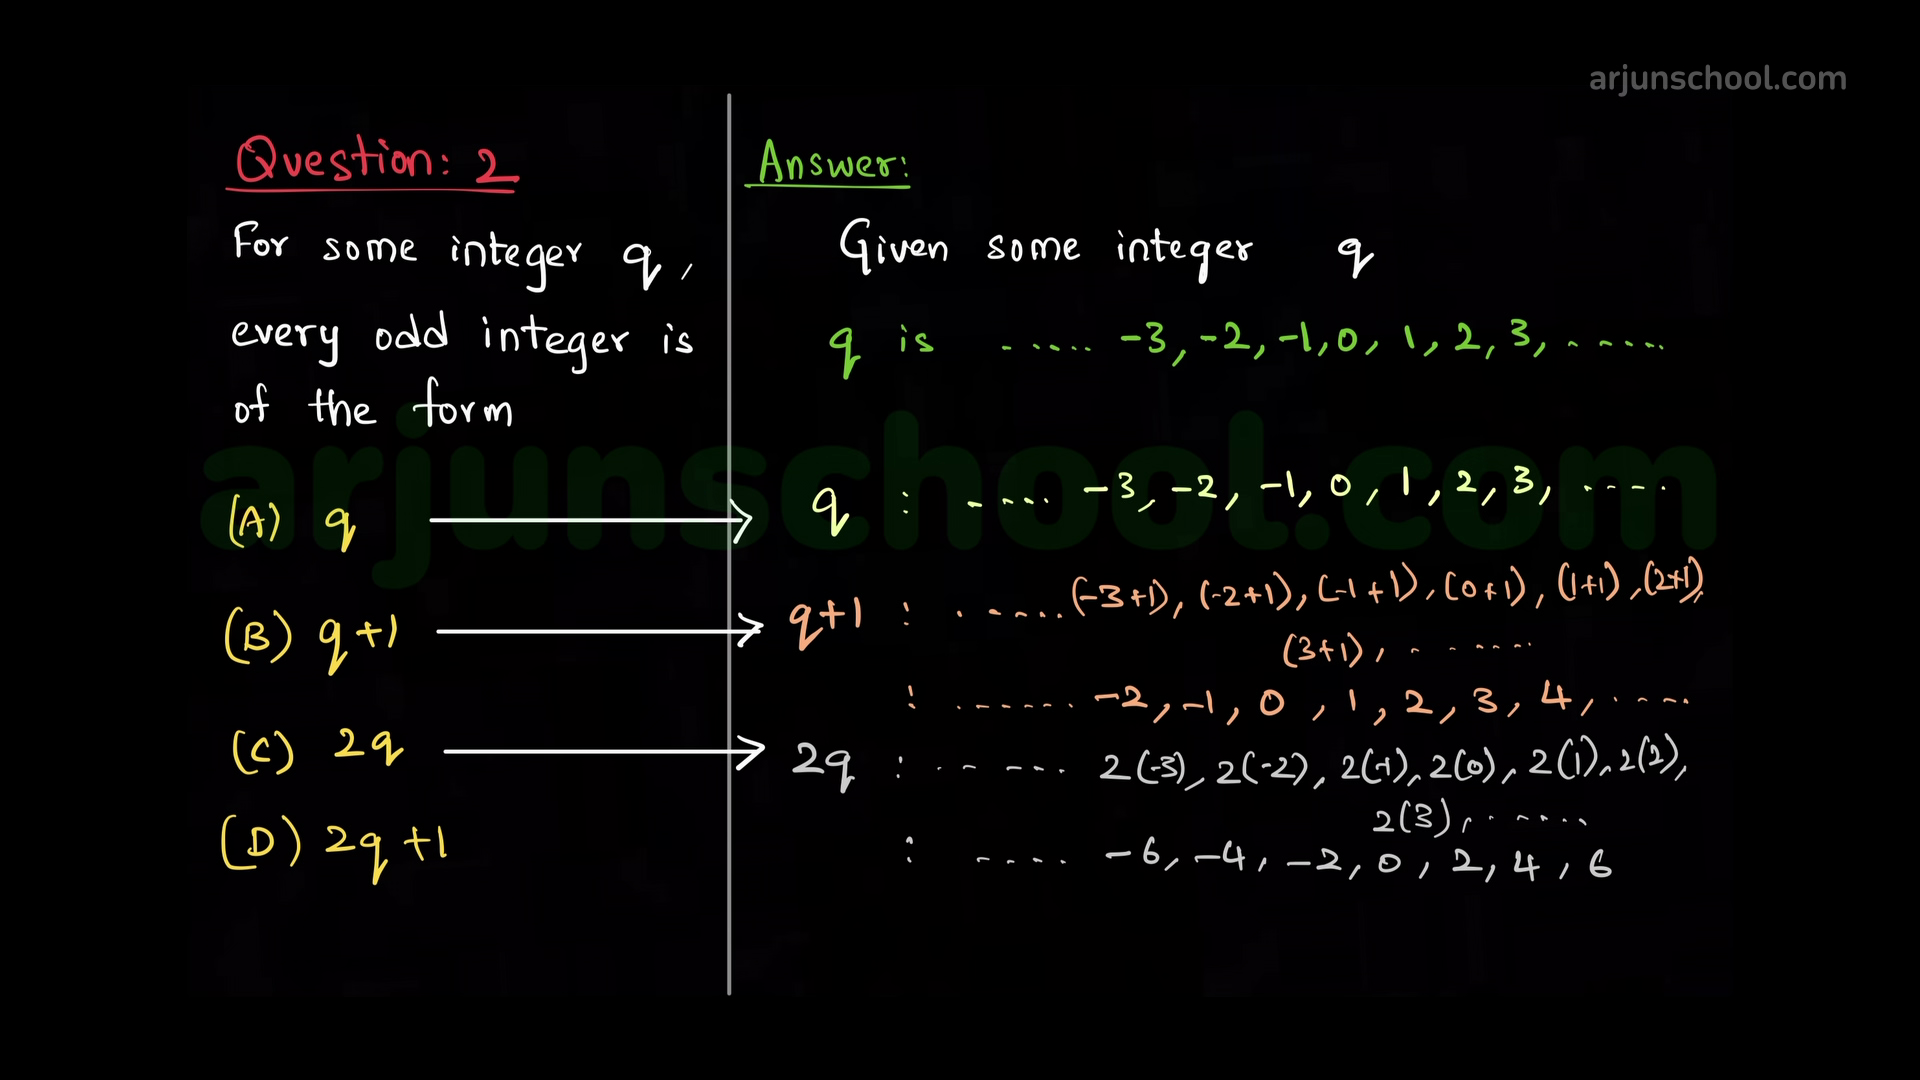 arjunschool.com
Question: 2
For some integer q,
every odd integer is
of the form
(A) q
(B) q+1
(C) 2q
(D) 2q+1
Answer:
Given some integer q
q is ..... -3, -2, -1, 0, 1, 2, 3, .....
q : ..... -3, -2, -1, 0, 1, 2, 3, .....
q+1 : ..... (-3+1), (-2+1), (-1+1), (0+1), (1+1), (2+1),
(3+1), .......
: ...... -2, -1, 0, 1, 2, 3, 4, .....
2q : ...... 2(-3), 2(-2), 2(-1), 2(0), 2(1), 2(2),
2(3), ......
: .... -6, -4, -2, 0, 2, 4, 6
arjunschool.com